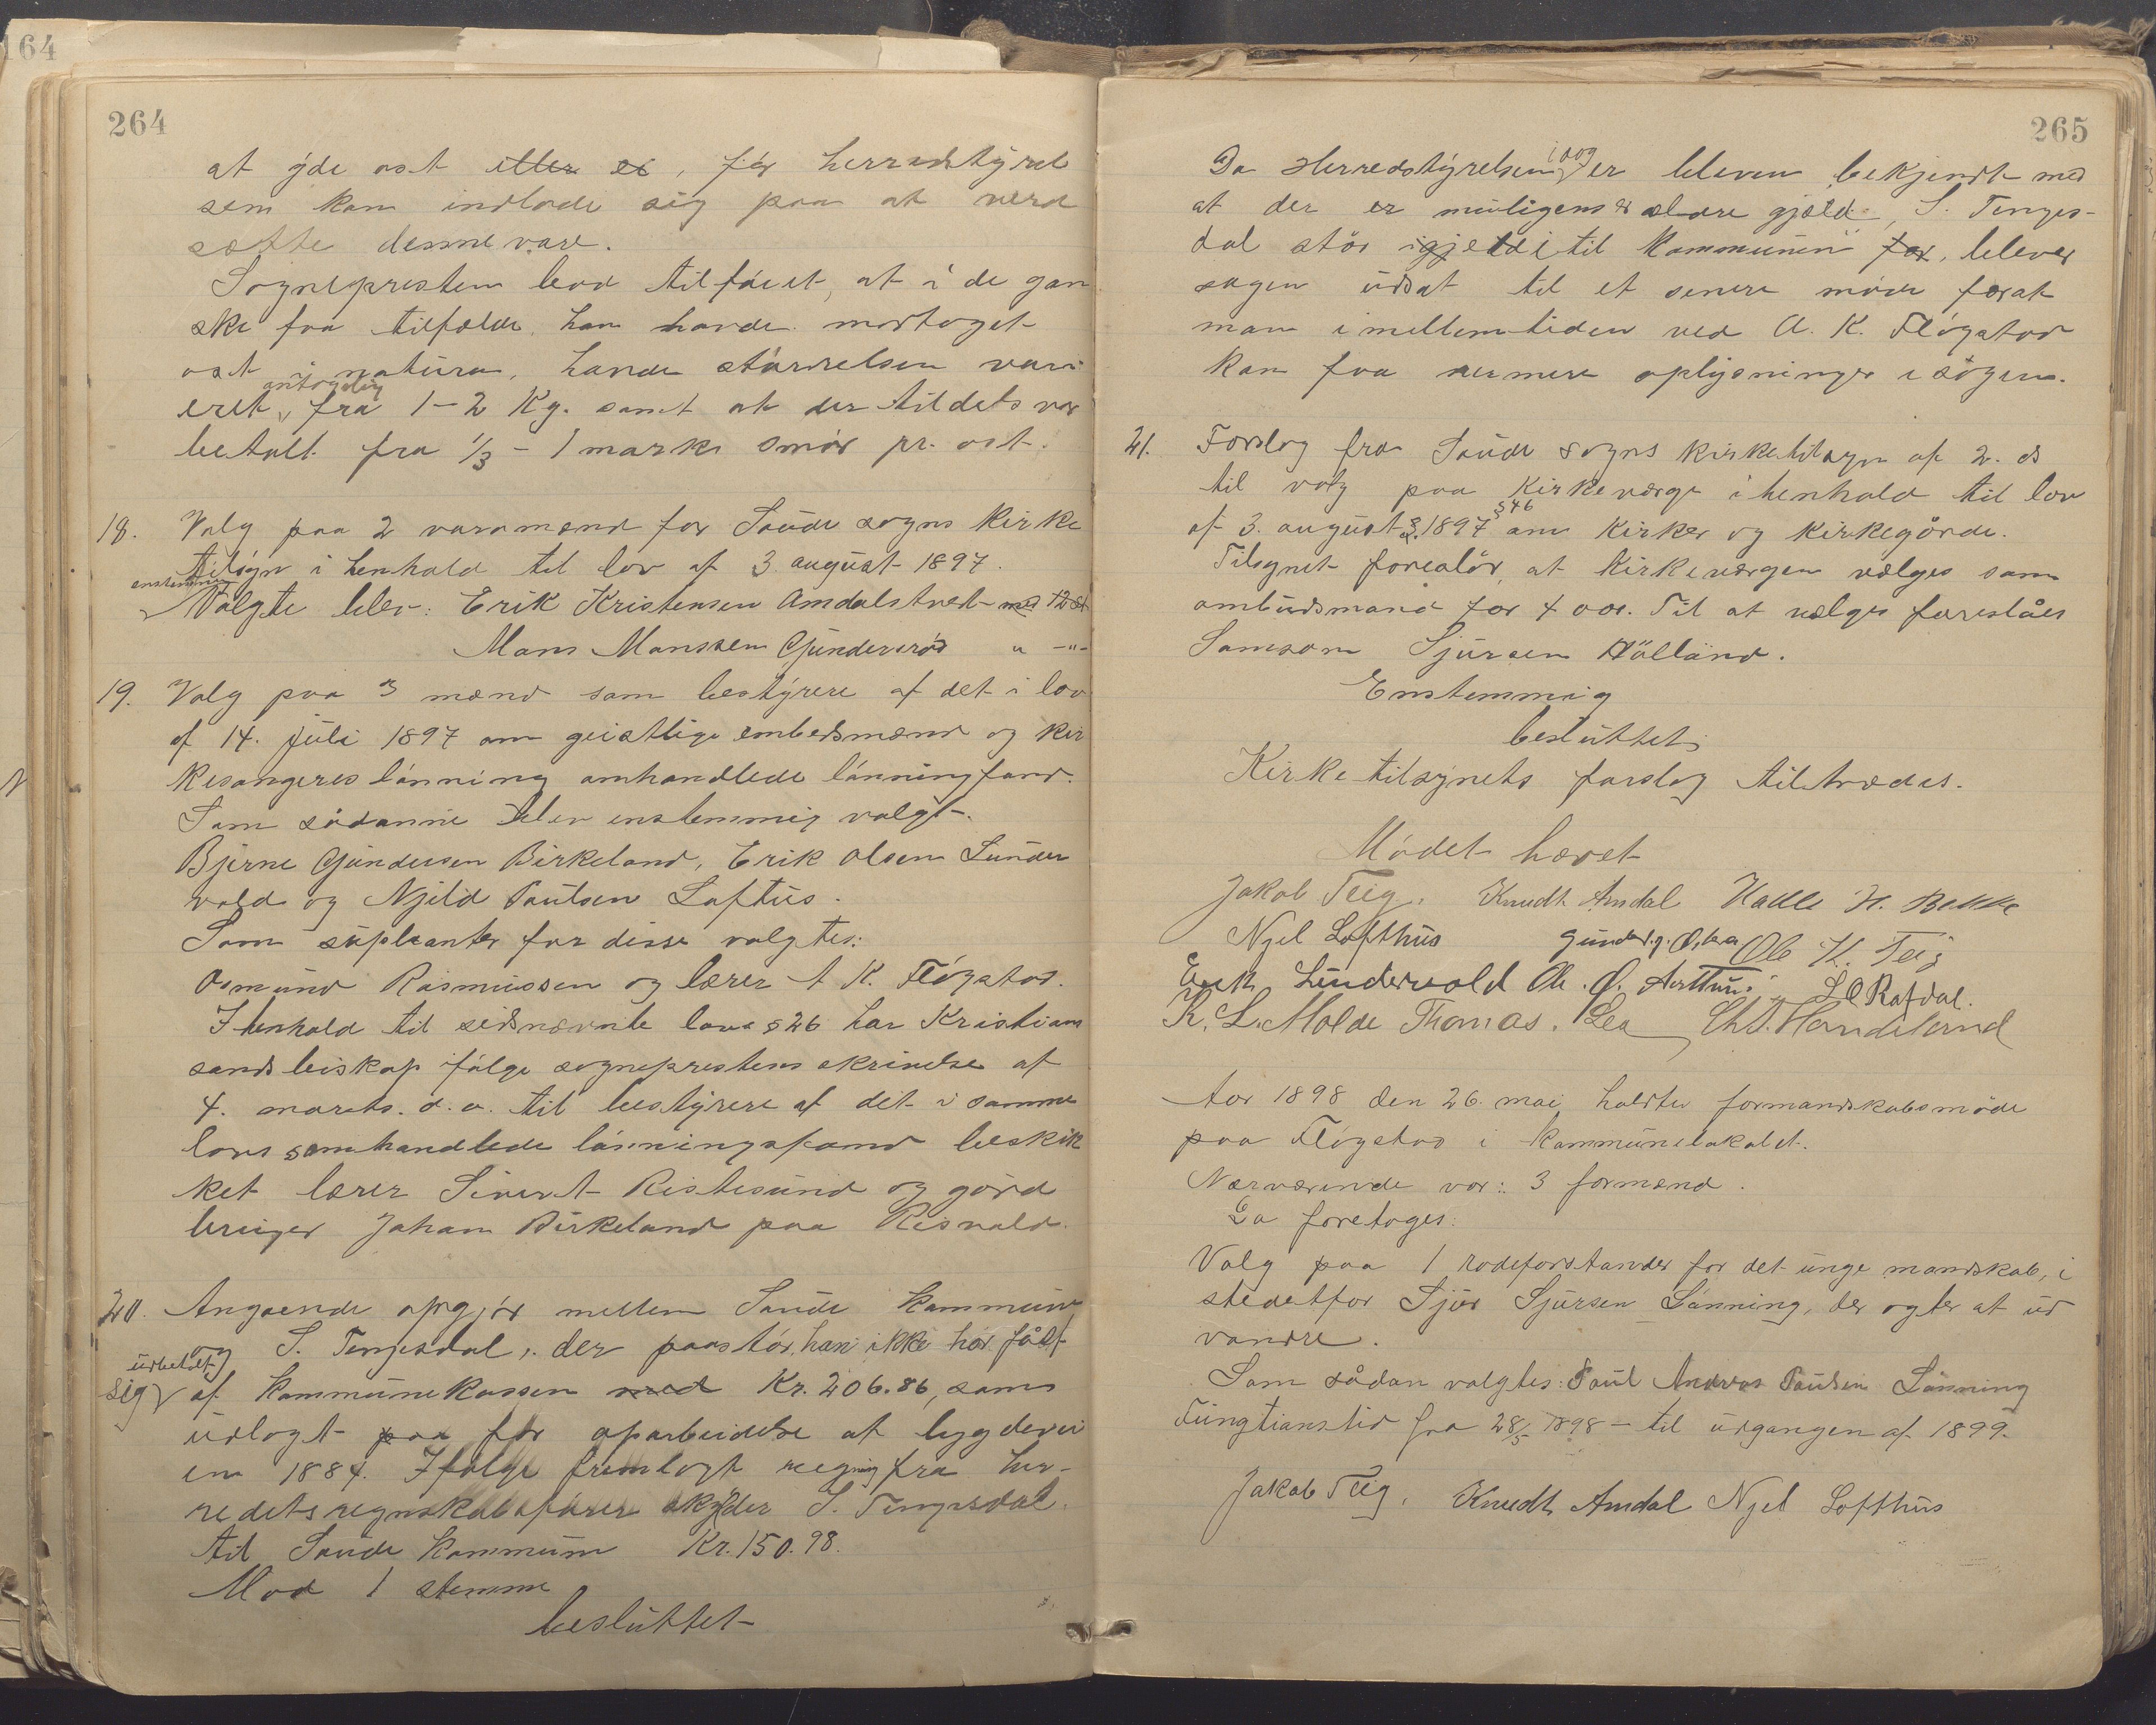 164
264
at yde ost eller ei, før herredstyret
sem kan indlade sig paa at verd
sætte denne vare.
Sognepresten lod tilføiet, at i de gan
ske faa tilfælde han havde modtaget
ost i natura, havde størrelsen vari
eret antagelig fra 1-2 Kg. samt at der tildels var
betalt fra 1/3 - 1 marks smør pr. ost.
18. Valg paa 2 varamænd for Saude sogns kirke
tilsyn i henhold til lov af 3 august 1897.
enstemmig Valgte blev: Erik Kristensen Amdalstvedt med 12 st.
Mans Manssen Gunderrød " -"-
19. Valg paa 3 mænd som bestyrere af det i lov
af 14. juli 1897 om geistlige embedsmænd og kir
kesangeres lønning omhandlede lønningsfond.
Som sådanne blev enstemmig valgt.
Bjørne Gundersen Birkeland, Erik Olsen Lunder
vold og Njeld Paulsen Loftus.
Som supleanter for disse valgtes:
Osmund Rasmussen og lærer A K. Fløgstad.
I henhold til sidsnævnte lovs § 26 har Kristians
sands biskop ifølge sogneprestens skrivelse af
4. marts. d. a. til bestyrere af det i samme
lovs omhandlede lønningsfond beskik
ket lærer Sivert Ristesund og gård
bruger Johan Birkeland paa Risvold.
20. Angaaende opgjør mellem Saude kommune
og S. Tengesdal, der paastår, han ikke har fået
udbetalt sig af kommunekassen med Kr. 206.86, som
udlagt paa for oparbeidelse af bygdevei
en 1884. Ifølge fremlagt regning fra her-
redets regnskabsfører skylder S. Tengesdal
til Saude kommune Kr. 150.98.
Mod 1 stemme
besluttet
265
Da Herredstyrelsen idag er bleven bekjendt med
at der er muligens ældre gjæld, S. Tenges-
dal står i gjeld i til kommunen for, blever
sagen udsat til et senere møde forat
man imellemtiden ved A. K. Fløgstad
kan faa nermere oplysninger i sagen.
21. Forslag fra Saude sogns kirketilsyn af 2. ds
til valg paa Kirkeværge i henhold til lov
af 3. august 1897 § 46 om Kirker og kirkegårde.
Tilsynet foreslår, at kirkeværgen vælges som
ombudsmand for 4 aar. Til at vælges foreslåes
Samson Sjursen Hölland.
Enstemmig
besluttet;
Kirketilsynets forslag tiltrædes.
Mødet hævet
Jakob Teig. Knudt Amdal Halle H. Bakke
Njel Lofthus Gunder. g. Ole K. Teig
Erik Lundervold Ole. O. Arthun S O Rafdal.
K. L. Molde Thomas. Lea Chr. J. Handeland
Aar 1898 den 26. mai holdtes formandskabsmøde
paa Fløgstad i kommunelokalet.
Nærværende var: 3 formænd.
Da foretoges:
Valg paa 1 rodeforstander for det unge mandskab, i
stedetfor Sjur Sjursen Lønning, der agter at ud
vandre.
Som sådan valgtes: Paul Andreas Paulsen Lønning
Fungtianstid fra 28/5 1898 - til udgangen af 1899.
Jakob Teig, Knudt Amdal Njel Lofthus